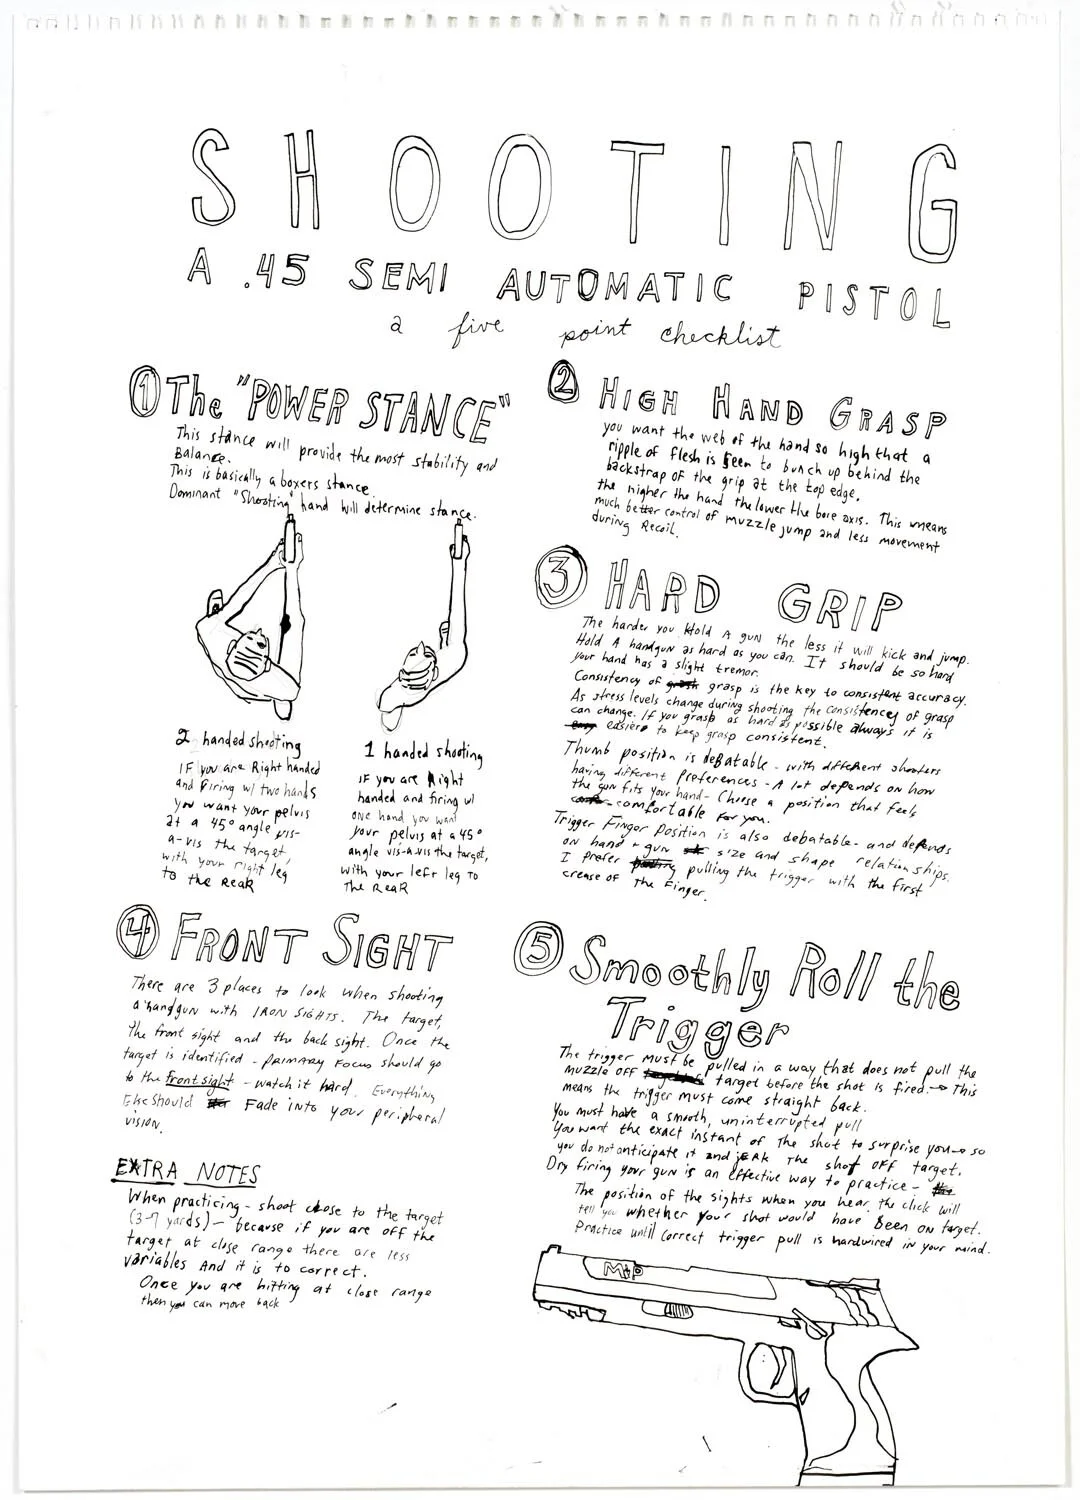 SHOOTING
A .45 SEMI AUTOMATIC PISTOL
a five point checklist
1 The "POWER STANCE"
This stance will provide the most stability and
Balance.
This is basically a boxers stance.
Dominant "Shooting" hand will determine stance.
2 handed shooting
IF you are Right handed
and firing w/ two hands
you want your pelvis
at a 45° angle vis-
a-vis the target,
with your right leg
to the REAR
1 handed shooting
IF you are Right
handed and firing w/
one hand you want
your pelvis at a 45°
angle vis-a-vis the target,
with your left leg to
the REAR
2 HIGH HAND GRASP
you want the web of the hand so high that a
ripple of flesh is seen to bunch up behind the
backstrap of the grip at the top edge.
the higher the hand the lower the bore axis. This means
much better control of muzzle jump and less movement
during Recoil.
3 HARD GRIP
The harder you Hold A gun the less it will kick and jump.
Hold A handgun as hard as you can. It should be so hard
your hand has a slight tremor.
Consistency of grasp is the key to consistent accuracy.
As stress levels change during shooting the consistencey of grasp
can change. If you grasp as hard as possible always it is
easiere to keep grasp consistent.
Thumb position is debatable - with different shooters
having different preferences - A lot depends on how
the gun fits your hand - Choose a position that feels
comfortable for you.
Trigger Fingor Position is also debatable - and depends
on hand + gun size and shape relationships.
I prefer pulling the trigger with the first
crease of the Finger.
4 FRONT SIGHT
There are 3 places to look when shooting
a handgun with IRON SIGHTS. The target,
the front sight and the back sight. Once the
target is identified - PRIMARY FOCUS should go
to the front sight - watch it hard. Everything
Else should Fade into your peripheral
vision.
EXTRA NOTES
When practicing - shoot close to the target
(3-7 yards) - because if you are off the
target at close range there are less
variables And it is to correct.
Once you are hitting at close range
then you can move back
5 Smoothly Roll the
Trigger
The trigger must be pulled in a way that does not pull the
muzzle off target before the shot is fired. → This
means the trigger must come straight back.
You must have a smooth, uninterrupted pull
You want the exact instant of the shot to surprise you → so
you do not anticipate it and jerk the shot off target.
Dry firing your gun is an effective way to practice -
The position of the sights when you hear the click will
tell you whether your shot would have Been on target.
Practice until correct trigger pull is hardwired in your mind.
M&P